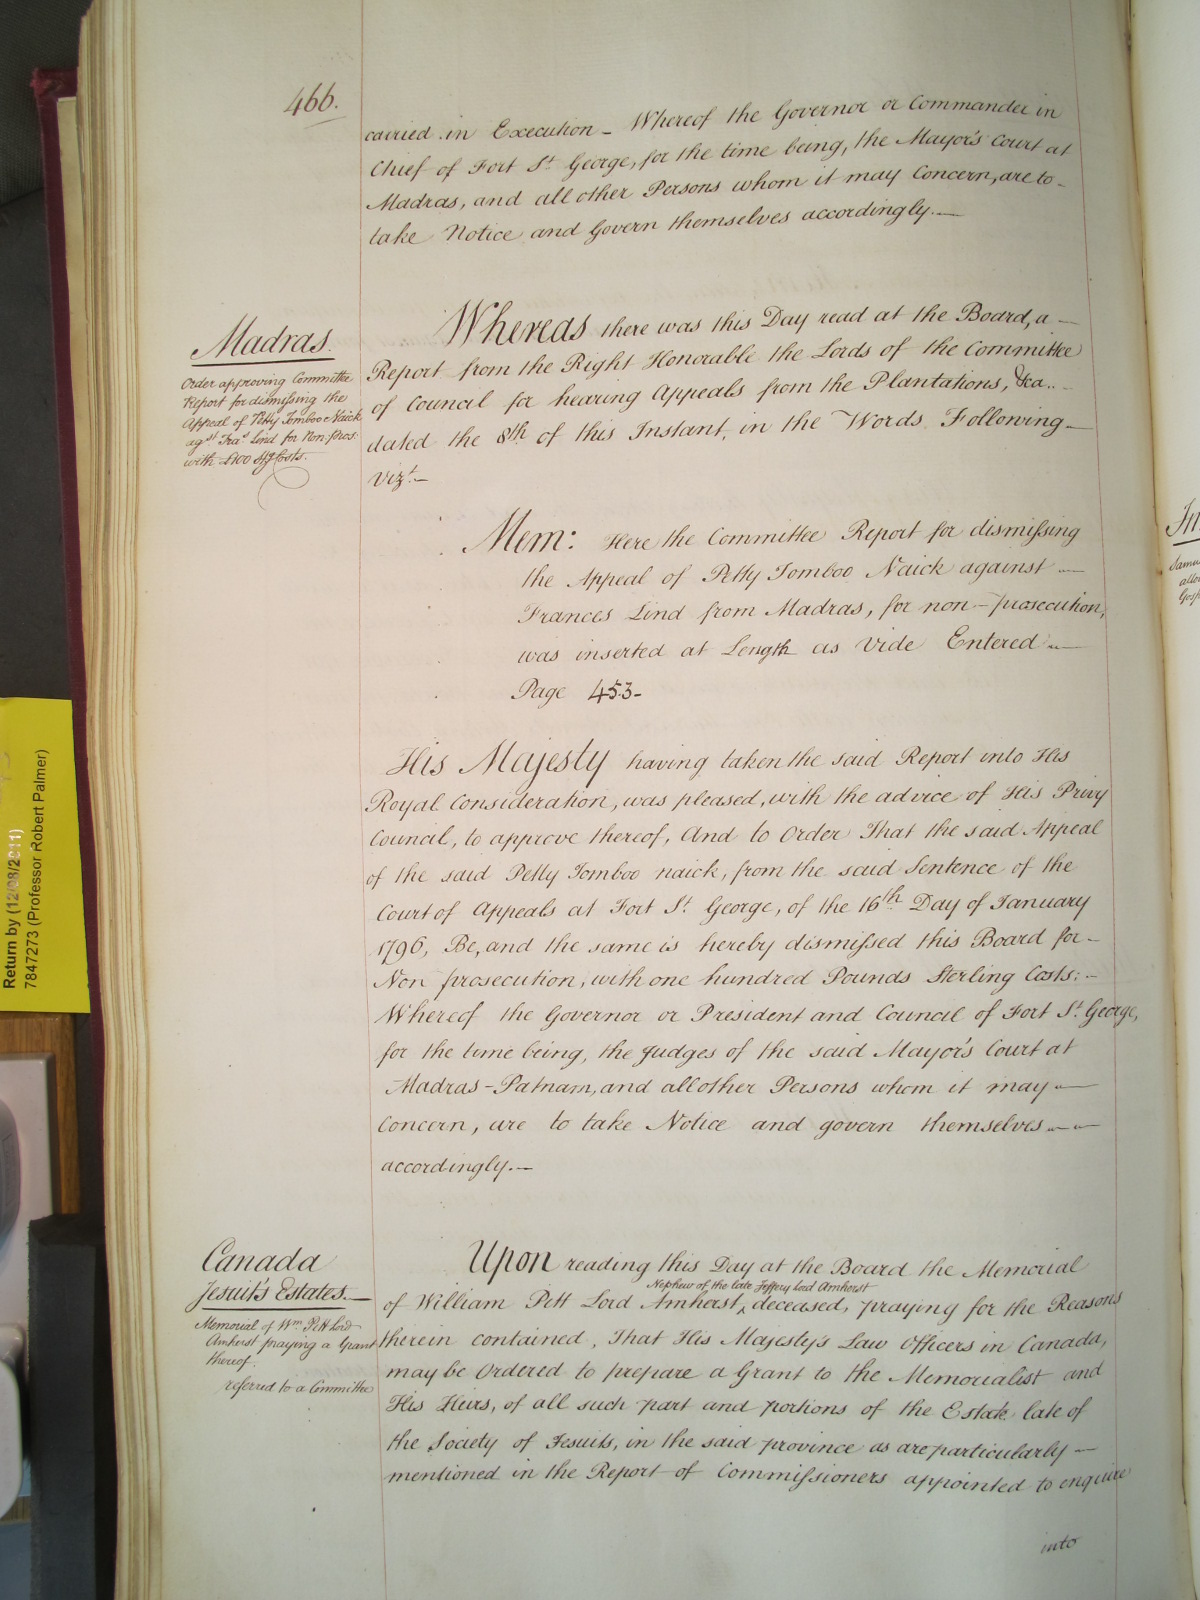 466.
carried in Execution – Whereof the Governor or Commander in
Chief of Fort St. George, for the time being, the Mayor's Court at
Madras, and all other Persons whom it may Concern, are to –
take Notice and Govern themselves accordingly. —
Madras.
Order approving Committee
Report for dismissing the
Appeal of Petty Tomboo Naick
agst. Fras. Lind for Non-pros:
with £100 Stg Costs.
Whereas there was this Day read at the Board, a —
Report from the Right Honorable the Lords of the Committee
of Council for hearing Appeals from the Plantations, &ca. –
dated the 8th of this Instant, in the Words Following –
Vizt. —
Mem: Here the Committee Report for dismissing
the Appeal of Petty Tomboo Naick against —
Frances Lind from Madras, for non-prosecution,
was inserted at Length as Vide Entered —
Page 453 –
His Majesty having taken the said Report into His
Royal Consideration, was pleased, with the advice of His Privy
Council, to approve thereof, And to Order That the said Appeal
of the said Petty Tomboo naick, from the said Sentence of the
Court of Appeals at Fort St. George, of the 16th Day of January
1796, Be, and the same is hereby dismissed this Board for –
Non prosecution, with one hundred Pounds Sterling Costs: –
Whereof the Governor or President and Council of Fort St. George,
for the time being, the Judges of the said Mayor's Court at
Madras-Patnam, and all other Persons whom it may —
Concern, are to take Notice and govern themselves — —
accordingly. —
Canada
Jesuit's Estates. —
Memorial of Wm. Pitt Lord
Amherst praying a Grant
thereof.
referred to a Committee
Upon reading this Day at the Board the Memorial
Nephew of the late Jeffery Lord Amherst
of William Pitt Lord Amherst ^ deceased, praying for the Reasons
therein contained, That His Majesty's Law Officers in Canada,
may be Ordered to prepare a Grant to the Memorialist and
His Heirs, of all such part and portions of the Estate late of
the Society of Jesuits, in the said province as are particularly —
mentioned in the Report of Commissioners appointed to enquire
into
Return by (12/08/2011)
7847273 (Professor Robert Palmer)